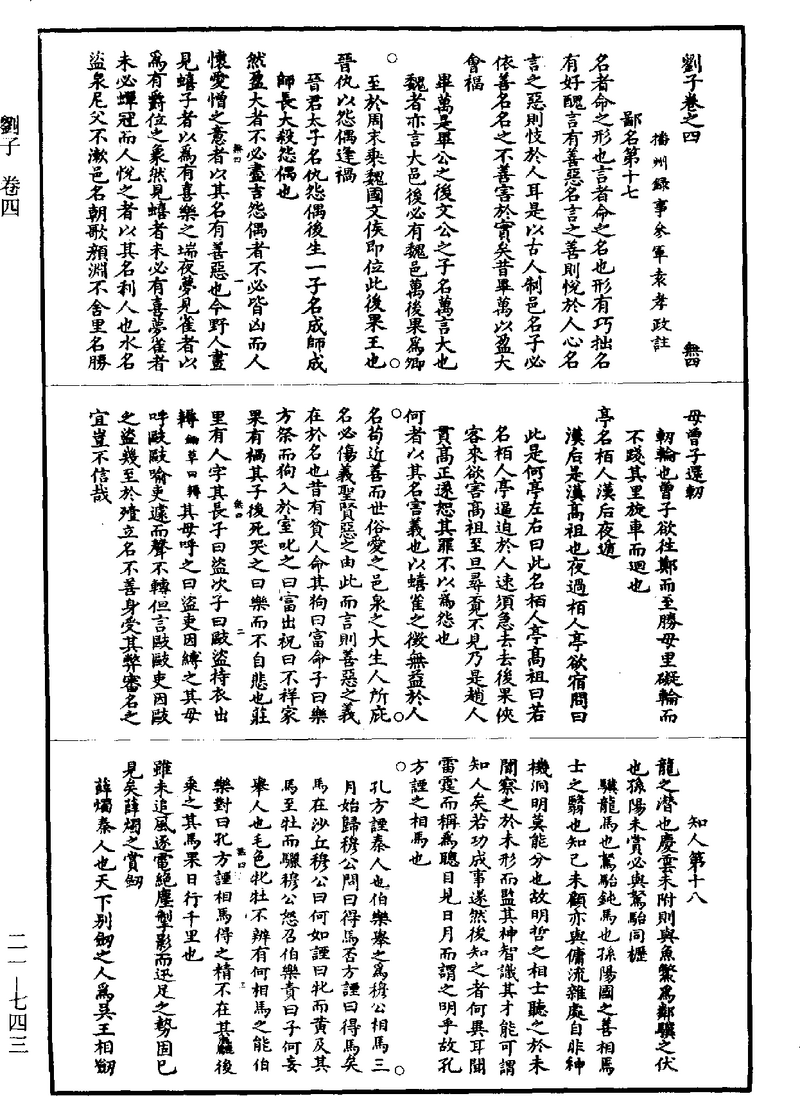 劉子卷之四
播州錄事參軍袁孝政註 無四
鄙名第十七
名者命之形也言者命之名也形有巧拙名
有好醜言有善惡名言之善則悅於人心名
言之惡則忮於人耳是以古人制邑名子必
依善名名之不善害於實矣昔畢萬以盈大
會福
畢萬是畢公之後文公之子名萬言大也
魏者亦言大邑後必有魏邑萬後果為卿
至於周末乘魏國文侯即位此後果王也
晉仇以怨偶逢禍
晉君太子名仇怨偶後生一子名成師成
師長大殺怨偶也
然盈大者不必盡吉怨偶者不必皆凶而人
懷愛憎之意者以其名有善惡也今野人晝
見蟢子者以為有喜樂之瑞夜夢見雀者以
為有爵位之象然見蟢者未必有喜夢雀者
未必蟬冠而人悅之者以其名利人也水名
盜泉尼父不漱邑名朝歌顏淵不舍里名勝
母曾子還軔
軔輪也曾子欲往鄭而至勝母里礙輪而
不踐其里旋車而迴也
亭名栢人漢后夜遁
漢后是漢高祖也夜過栢人亭欲宿問曰
此是何亭左右曰此名栢人亭高祖曰若
名栢人亭逼迫於人速須急去去後果俠
客來欲害高祖至旦尋覓不見乃是趙人
貫高正遂恕其罪不以為怨也
何者以其名害義也以蟢雀之徵無益於人
名苟近善而世俗愛之邑泉之大生人所庇
名必傷義聖賢惡之由此而言則善惡之義
在於名也昔有貧人命其狗曰富命子曰樂
方祭而狗入於室叱之曰富出祝曰不祥家
果有禍其子後死哭之曰樂而不自悲也莊
里有人字其長子曰盜次子曰毆盜持衣出
耨其母呼之曰盜吏因縛之其母
呼毆毆喻吏遽而聲不轉但言毆毆吏因毆
之盜幾至於殪立名不善身受其弊審名之
宜豈不信哉
知人第十八
龍之潛也慶雲未附則與魚鱉為鄰驥之伏
也孫陽未賞必與駑駘同櫪
驥龍馬也駑駘鈍馬也孫陽國之善相馬
士之翳也知己未顧亦與傭流雜處自非神
機洞明莫能分也故明哲之相士聽之於未
聞察之於未形而監其神智識其才能可謂
知人矣若功成事遂然後知之者何異耳聞
雷霆而稱為聰目見日月而謂之明乎故孔
方諲之相馬也
孔方諲秦人也伯樂舉之為穆公相馬三
月始歸穆公問曰得馬否方諲曰得馬矣
馬在沙丘穆公曰何如諲曰牝而黃及其
馬至牡而驪穆公怒召伯樂責曰子何妄
舉人也毛色牝牡不辨有何相馬之能伯
樂對曰孔方諲相馬得之精不在其麤後
乘之其馬果日行千里也
雖未追風逐電絕塵掣影而迅足之勢固已
見矣薛燭之賞劒
薛燭秦人也天下別劒之人為吳王相劒
劉子 卷四
二一—七四三